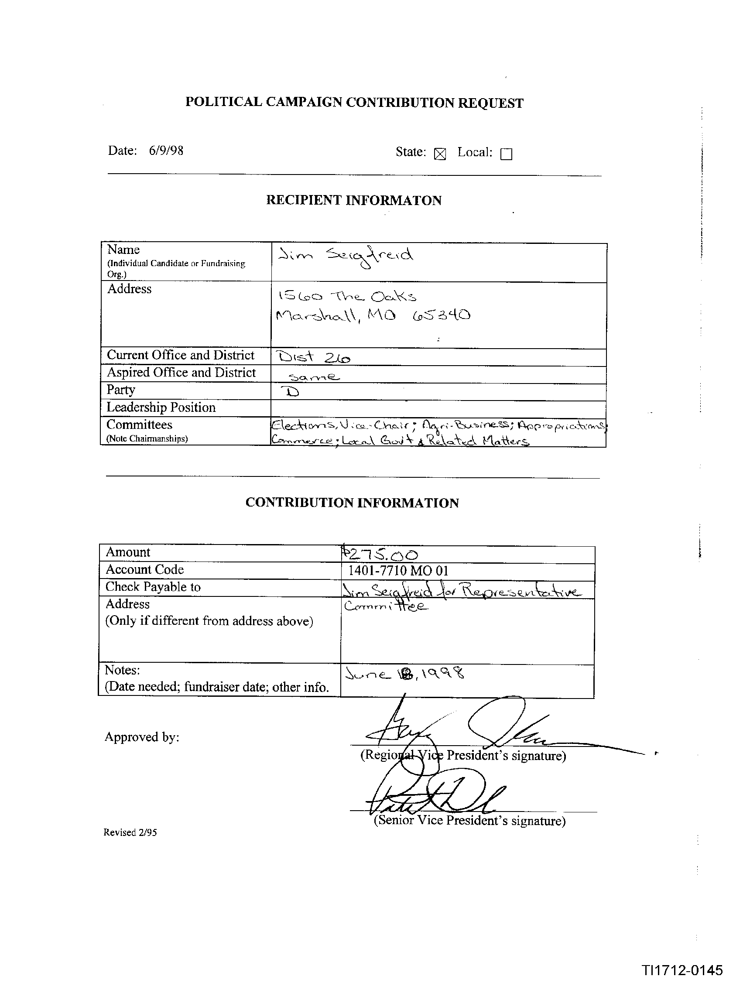 POLITICAL CAMPAIGN CONTRIBUTION REQUEST
Date: 6/9/98 State: ☒ Local: ☐
RECIPIENT INFORMATON
Name Jim Seigfreid
(Individual Candidate or Fundraising
Org.)
Address 1560 The Oaks
Marshall, MO 65340
Current Office and District Dist 26
Aspired Office and District same
Party D
Leadership Position
Committees Elections, Vice-Chair; Agri-Business; Appropriations;
(Note Chairmanships) Commerce; Local Gov't & Related Matters
CONTRIBUTION INFORMATION
Amount $275.00
Account Code 1401-7710 MO 01
Check Payable to Jim Seigfreid for Representative
Address Committee
(Only if different from address above)
Notes: June , 1998
(Date needed; fundraiser date; other info.
Approved by:
(Regional Vice President's signature)
(Senior Vice President's signature)
Revised 2/95
TI1712-0145